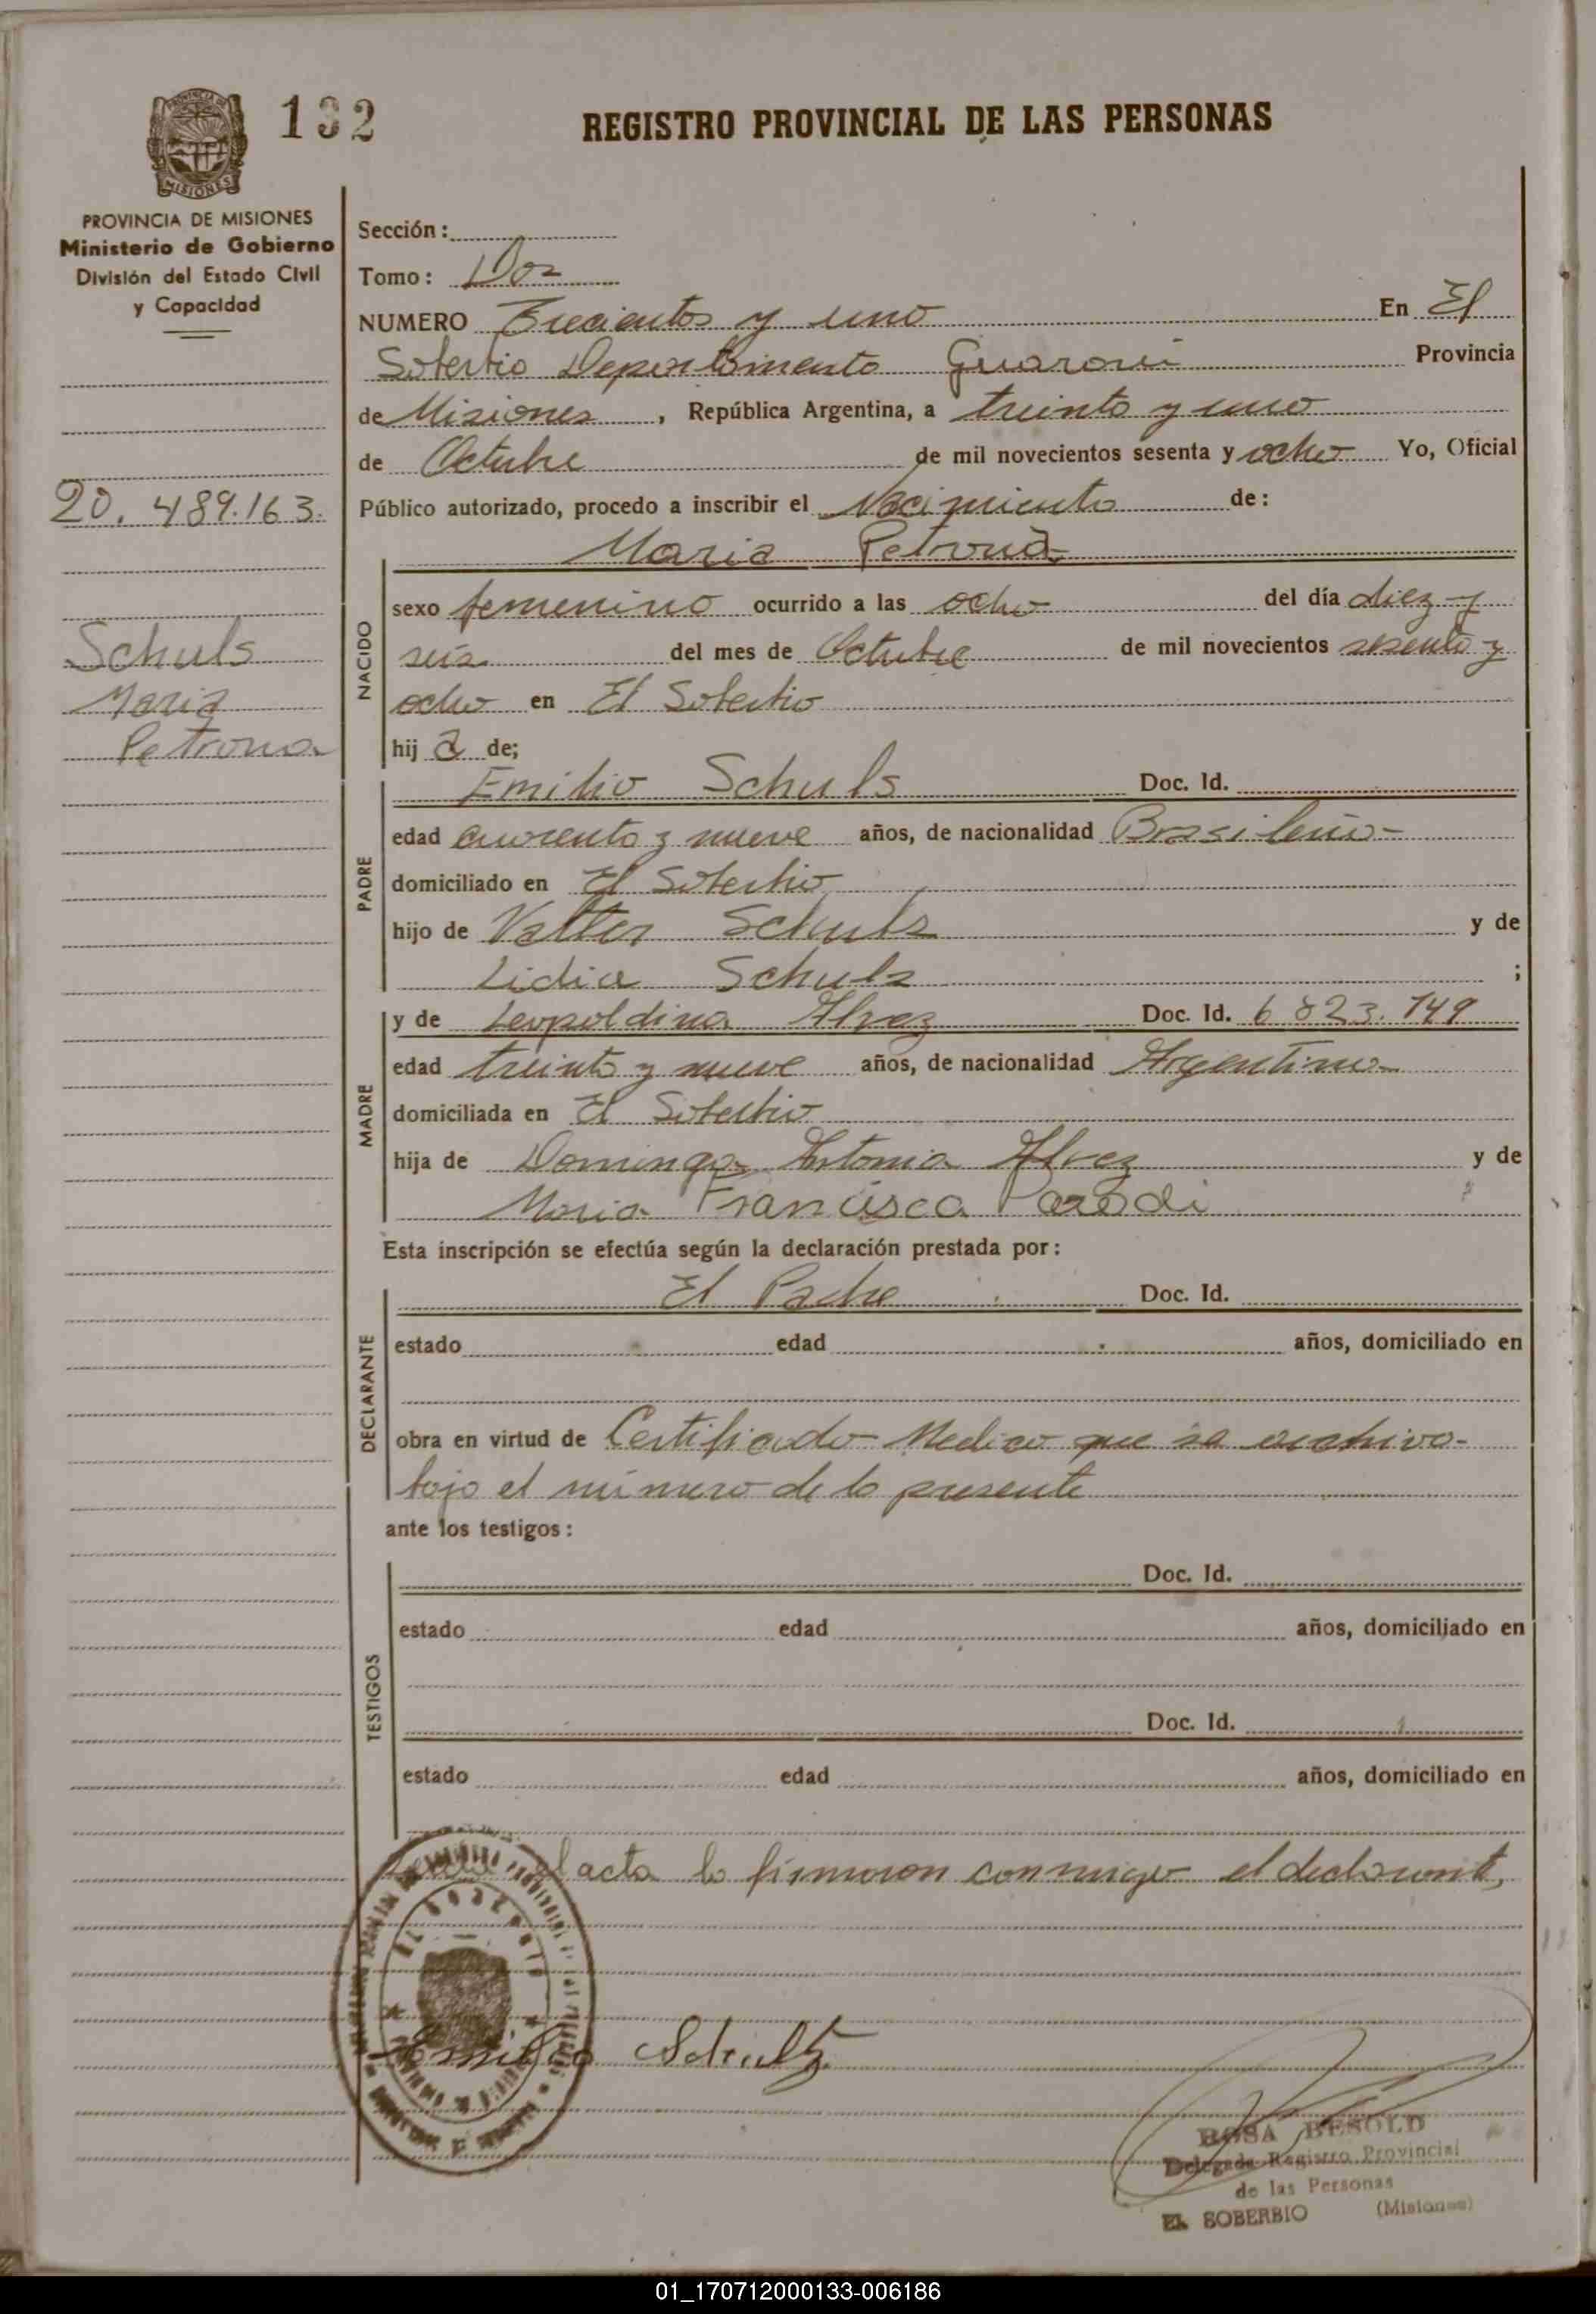 132
REGISTRO PROVINCIAL DE LAS PERSONAS
PROVINCIA DE
MISIONES
PROVINCIA DE MISIONES
Ministerio de Gobierno
División del Estado Civil
y Capacidad
20.489.163.
Schuls
Maria
Petrona
Sección:
Tomo: Dos
NUMERO Trecientos y uno En El
Soberbio Departamento Guarani Provincia
de Misiones, República Argentina, a treinta y uno
de Octubre de mil novecientos sesenta y ocho Yo, Oficial
Público autorizado, procedo a inscribir el Nacimiento de:
Maria Petrona
NACIDO
sexo femenino ocurrido a las ocho del día diez y
seis del mes de Octubre de mil novecientos sesenta y
ocho en El Soberbio
hij a de;
PADRE
Emilio Schuls Doc. Id.
edad cuarenta y nueve años, de nacionalidad Brasileño-
domiciliado en El Soberbio
hijo de Valter Schuls y de
Lidia Schuls ;
MADRE
y de Leopoldina Alvez Doc. Id. 6.823.149
edad treinta y nueve años, de nacionalidad Argentina
domiciliada en El Soberbio
hija de Domingo Antonio Alvez y de
Maria Francisca Parodi
Esta inscripción se efectúa según la declaración prestada por:
DECLARANTE
El Padre Doc. Id.
estado edad años, domiciliado en
obra en virtud de Certificado Medico que se archiva-
bajo el número de la presente
ante los testigos:
TESTIGOS
Doc. Id.
estado edad años, domiciliado en
Doc. Id.
estado edad años, domiciliado en
el acta la firmaron conmigo el declarante,
Emilio Schultz
ROSA BESOLD
Delegada Registro Provincial
de las Personas
EL SOBERBIO (Misiones)
01_170712000133-006186